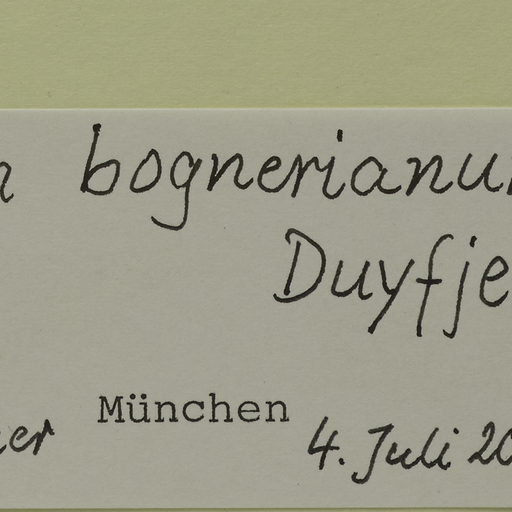 n bognerianu
Duyfje
er München 4. Juli 20